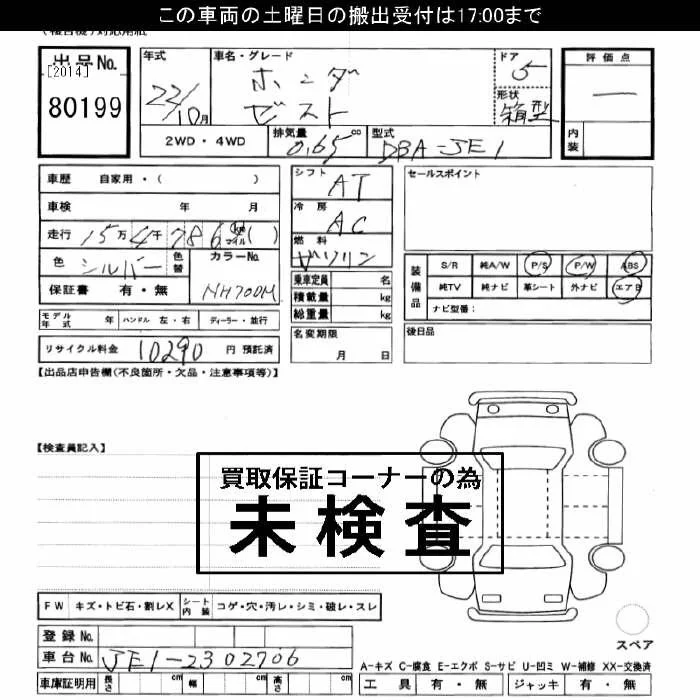 この車両の土曜日の搬出受付は17:00まで
出品No.
[2014]
80199
年式
22/10月
車名・グレード
ホンダ
ゼスト
ドア
5
形状
箱型
評価点
―
内装
2WD・4WD
排気量
0.65 cc
型式
DBA-JE1
車歴 自家用・( )
車検 年 月
走行 15万4千786 km マイル ( )
色 シルバー 色替
カラーNo.
NH700M
保証書 有・無
モデル年式 年 ハンドル 左・右 ディーラー・並行
リサイクル料金 10290 円 預託済
シフト
AT
冷房
AC
燃料
ガソリン
乗車定員 名
積載量 kg
総重量 kg
名変期限
月 日
セールスポイント
装備品
S/R 純A/W P/S P/W ABS
純TV 純ナビ 革シート 外ナビ エアB
ナビ型番:
後日品
【出品店申告欄(不良箇所・欠品・注意事項等)】
【検査員記入】
買取保証コーナーの為
未検査
FW キズ・トビ石・割レX シート内装 コゲ・穴・汚レ・シミ・破レ・スレ
登録No.
車台No. JE1-2302706
車庫証明用 長さ cm 幅 cm 高さ cm
スペア
A-キズ C-腐食 E-エクボ S-サビ U-凹ミ W-補修 XX-交換済
工具 有・無 ジャッキ 有・無